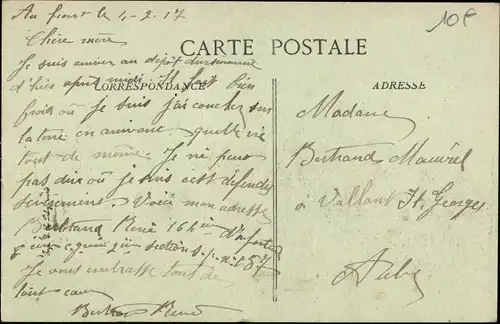 Au front le 4-2-17
10€
Chère mère
CARTE POSTALE
Je suis arrivé au dépôt divisionnaire
d'hier après midi. Il fait bien
CORRESPONDANCE
ADRESSE
froid où je suis j'ai couchez sur
la terre en arrivant. quelle vie
tout de même. Je ne peux
pas dire où je suis cest défendu
sévèrement. Voici mon adresse
Bertrand René 164 ième d'infanterie
9 ième Cie section S.P. n° 57
Je vous embrasse tous de
tout cœur
Bertrand René
Madame
Bertrand
à Vallant St. Georges
Aube